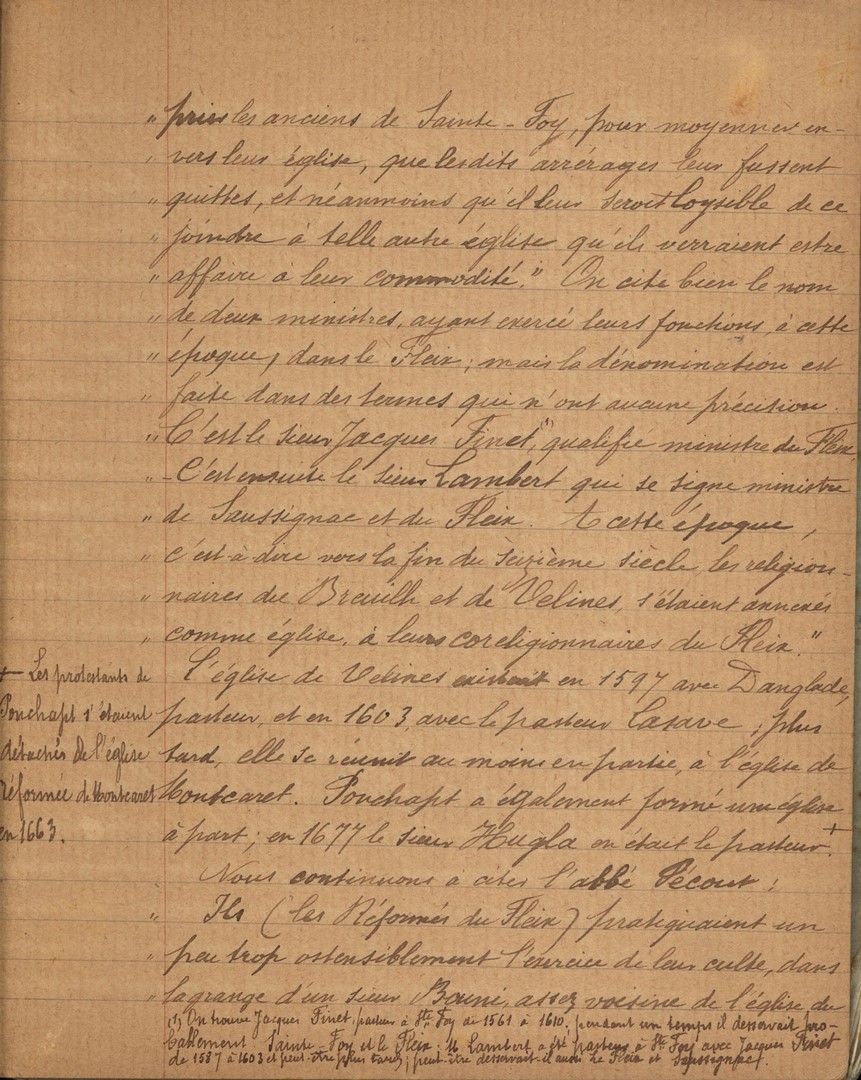 " prins les anciens de Sainte-Foy, pour moyenner en-
" vers leur église, que lesdits arrérages leur fussent
" quittes, et néanmoins qu'il leur seroit loysible de ce
" joindre à telle autre église qu'ils verraient estre
" affaire à leur commodité." On cite bien le nom
" de deux ministres, ayant exercé leurs fonctions, à cette
" époque, dans le Fleix ; mais la dénomination est
" faite dans des termes qui n'ont aucune précision.
" C'est le sieur Jacques Finet, (1) qualifié ministre du Fleix.
" - C'est ensuite le sieur Lambert qui se signe ministre
" de Saussignac et du Fleix. A cette époque,
" c'est-à-dire vers la fin du seizième siècle, les religion-
" naires du Breuilh et de Velines, s'étaient annexés
" comme église, à leurs coreligionnaires du Fleix."
L'église de Velines existait en 1597 avec Danglade,
pasteur, et en 1603, avec le pasteur Casave ; plus
tard, elle se réunit au moins en partie, à l'église de
Montcaret. Ponchapt a également formé une église
à part ; en 1677 le sieur Hugla en était le pasteur. +
+ Les protestants de
Ponchapt s'étaient
détachés de l'église
réformée de Montcaret
en 1663.
Nous continuons à citer l'abbé Pécout :
" Ils (les Réformés du Fleix) pratiquaient un
" peu trop ostensiblement l'exercice de leur culte, dans
" la grange d'un sieur Bouni, assez voisine de l'église du
(1) On trouve Jacques Finet, pasteur à Ste Foy de 1561 à 1610 ; pendant un temps il desservait pro-
bablement Sainte-Foy et le Fleix ; M. Lambert a été pasteur à Ste Foy avec Jacques Finet
de 1587 à 1603 et peut-être plus tard ; peut-être desservait-il aussi Le Fleix et Saussignac.